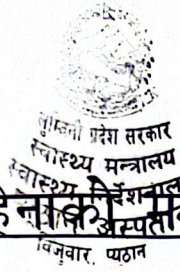 लुम्बिनी प्रदेश सरकार
स्वास्थ्य मन्त्रालय
स्वास्थ्य निर्देशनालय
अस्पताल
विजुवार, प्यूठान